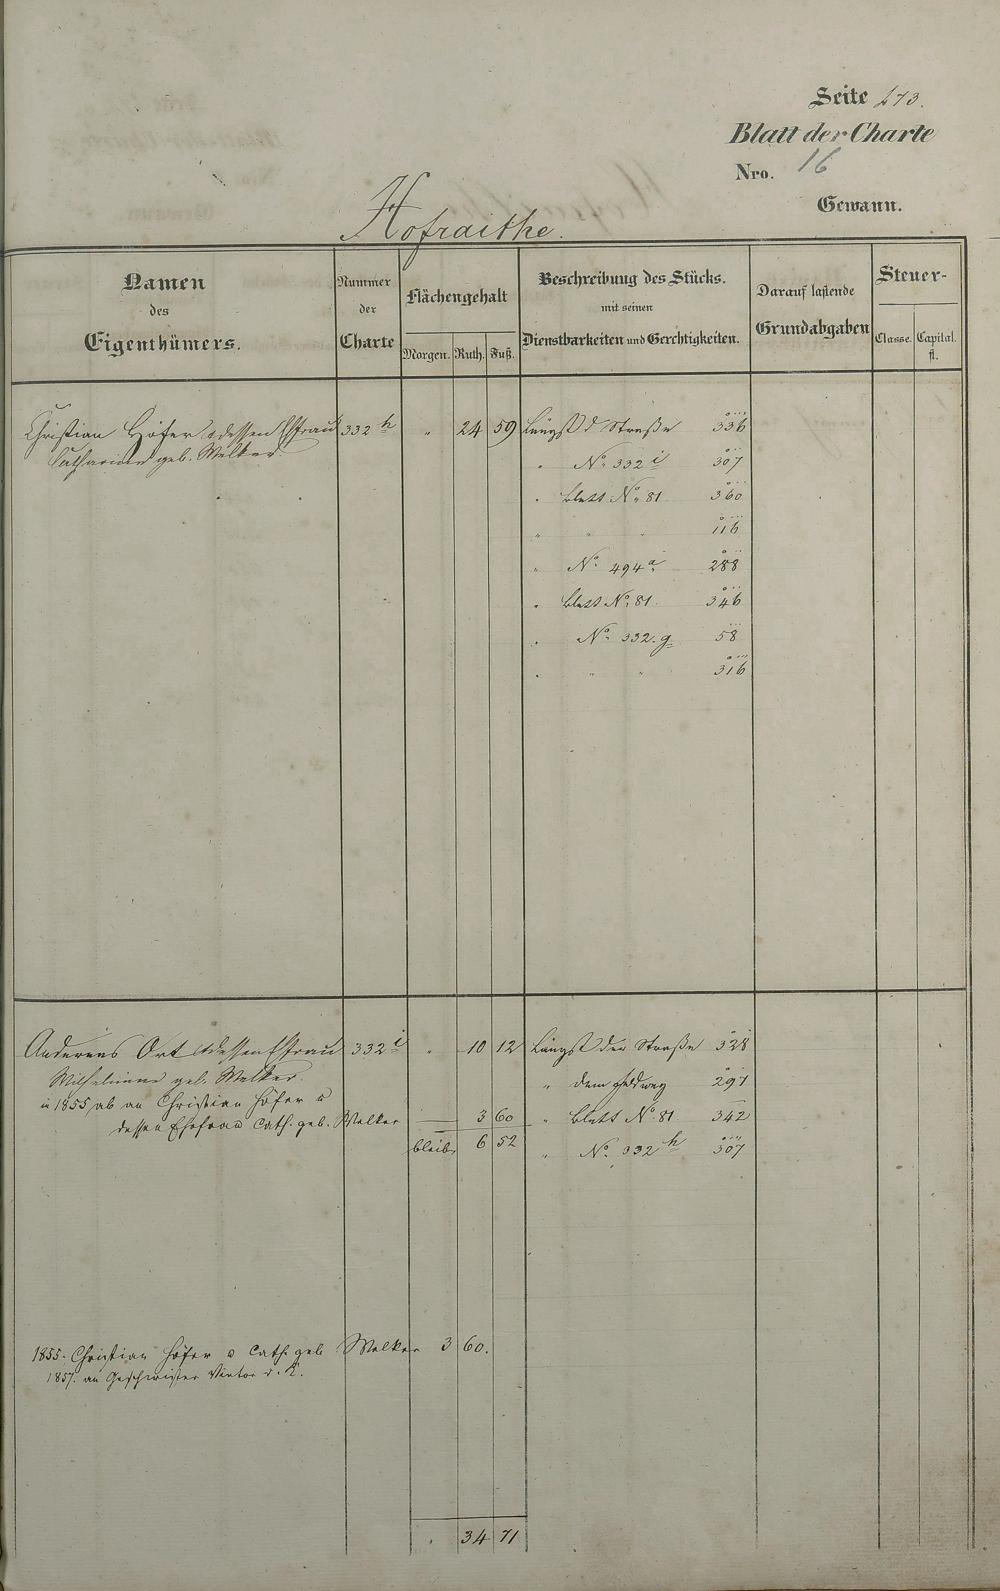 Seite 273.
Blatt der Charte
Nro. 16
Gewann.
Hofraithe.
Namen des Eigenthümers.
Nummer der Charte
Flächengehalt
Morgen. Ruth. Fuß.
Beschreibung des Stücks. mit seinen Dienstbarkeiten und Gerchtigkeiten.
Darauf lastende Grundabgaben
Steuer-
Classe. Capital. fl.
Christian Höfer u dessen Ehfrau 332 h " 24 59 Längst d Straße 336
Catharine geb. Welker. " No. 332 i 307
" Blatt No. 81 360
" " " 116
" No. 494 a 288
" Blatt No. 81. 346
" No. 332. g 58
" " " 316
Andreas Ort u dessen Ehfrau 332 i " 10 12 Längst der Straße 328
Wilhelmine geb. Welker. " dem Feldweg 297
in 1855 ab an Christian Höfer u
dessen Ehefrau Cath. geb. Welker 3 60 " Blatt No. 81 342
bleib 6 52 " No. 332 h 307
1855. Christian Höfer u Cath. geb Welker 3 60.
1857. an Geschwister
. 34 71